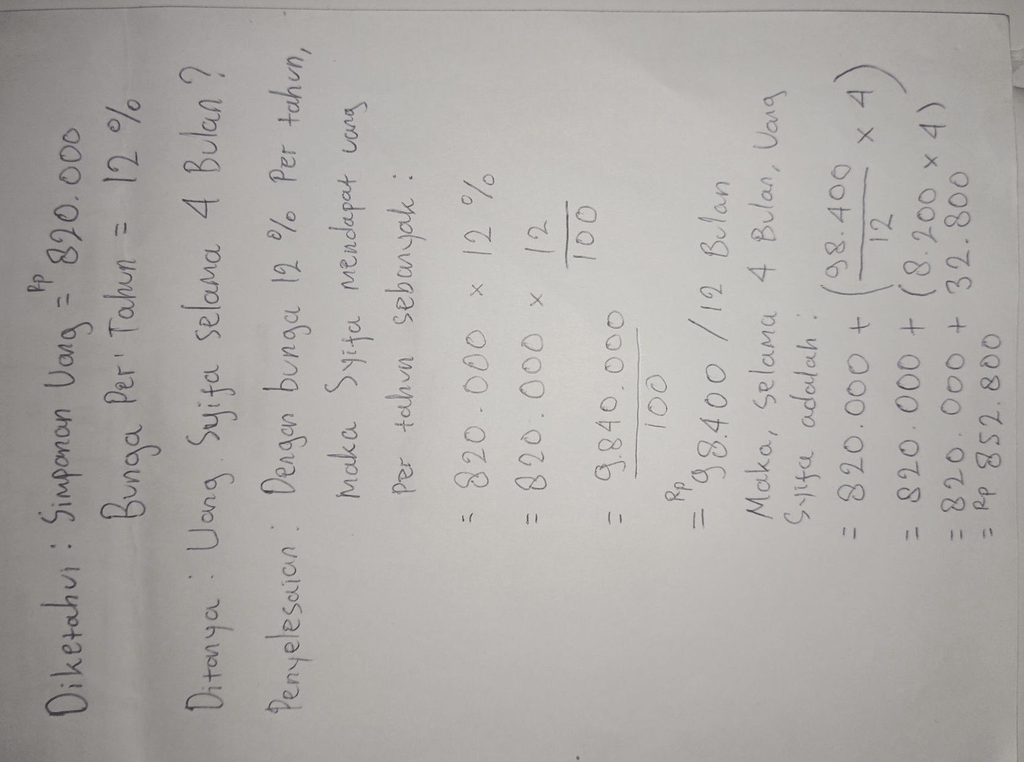 Diketahui : Simpanan Uang = Rp 820.000
Bunga Per Tahun = 12 %
Ditanya : Uang Syifa selama 4 Bulan ?
Penyelesaian : Dengan bunga 12 % Per tahun,
Maka Syifa mendapat uang
Per tahun sebanyak :
= 820.000 x 12 %
= 820.000 x 12/100
= 9.840.000/100
= Rp 98.400 / 12 Bulan
Maka, selama 4 Bulan, Uang
Syifa adalah :
= 820.000 + (98.400/12 x 4)
= 820.000 + (8.200 x 4)
= 820.000 + 32.800
= Rp 852.800